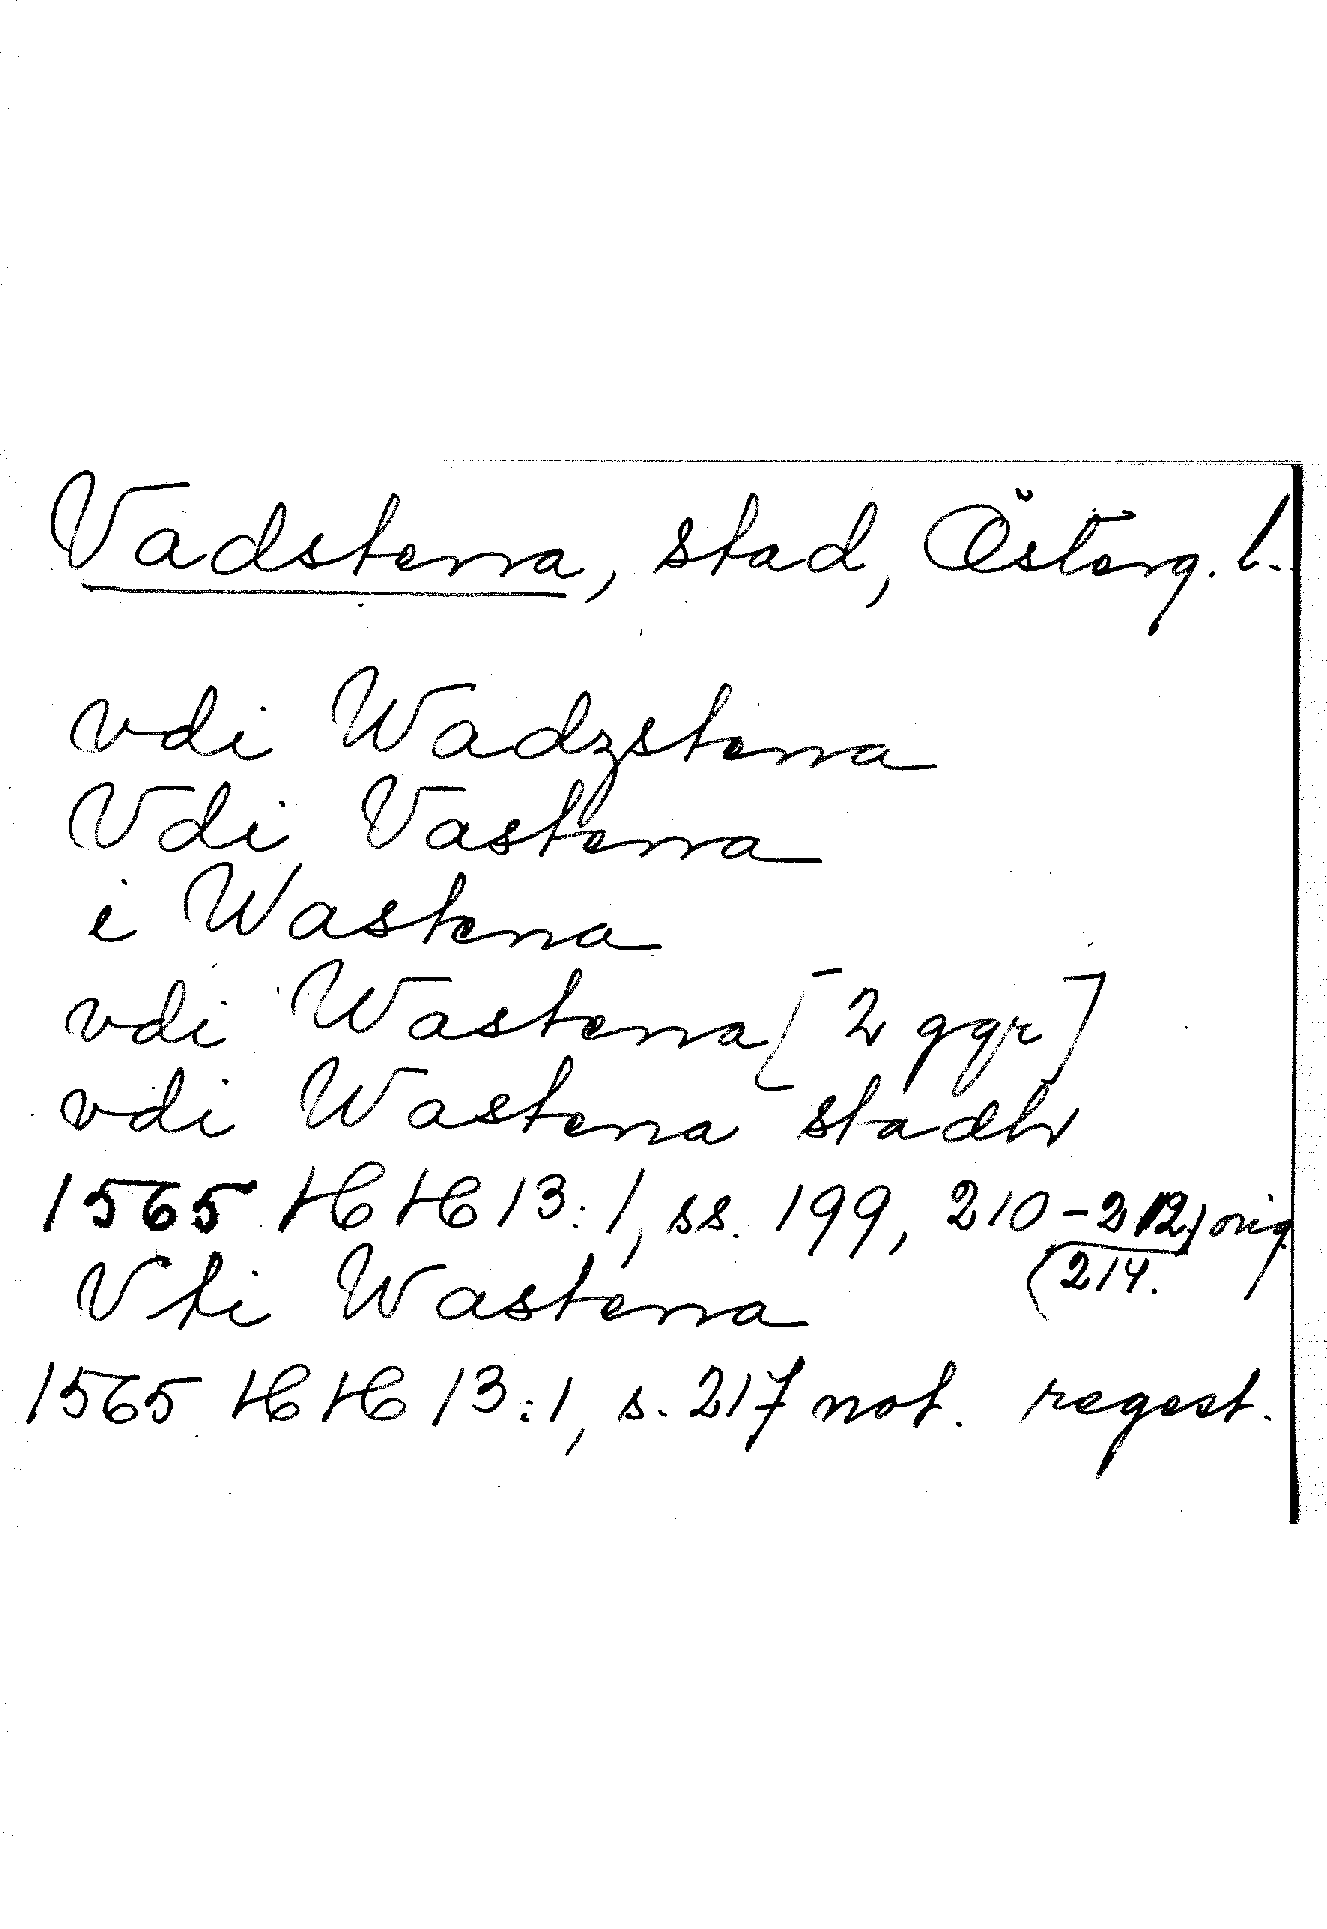 Vadstena, stad, Österg. l.
vdi Wadzstena
Vdi Vastena
i Wastena
vdi Wastena [2 ggr]
vdi Wastena stadh
1565 HH 13:1, ss. 199, 210-212, orig.
214.
Vti Wastena
1565 HH 13:1, s. 217 not. regest.